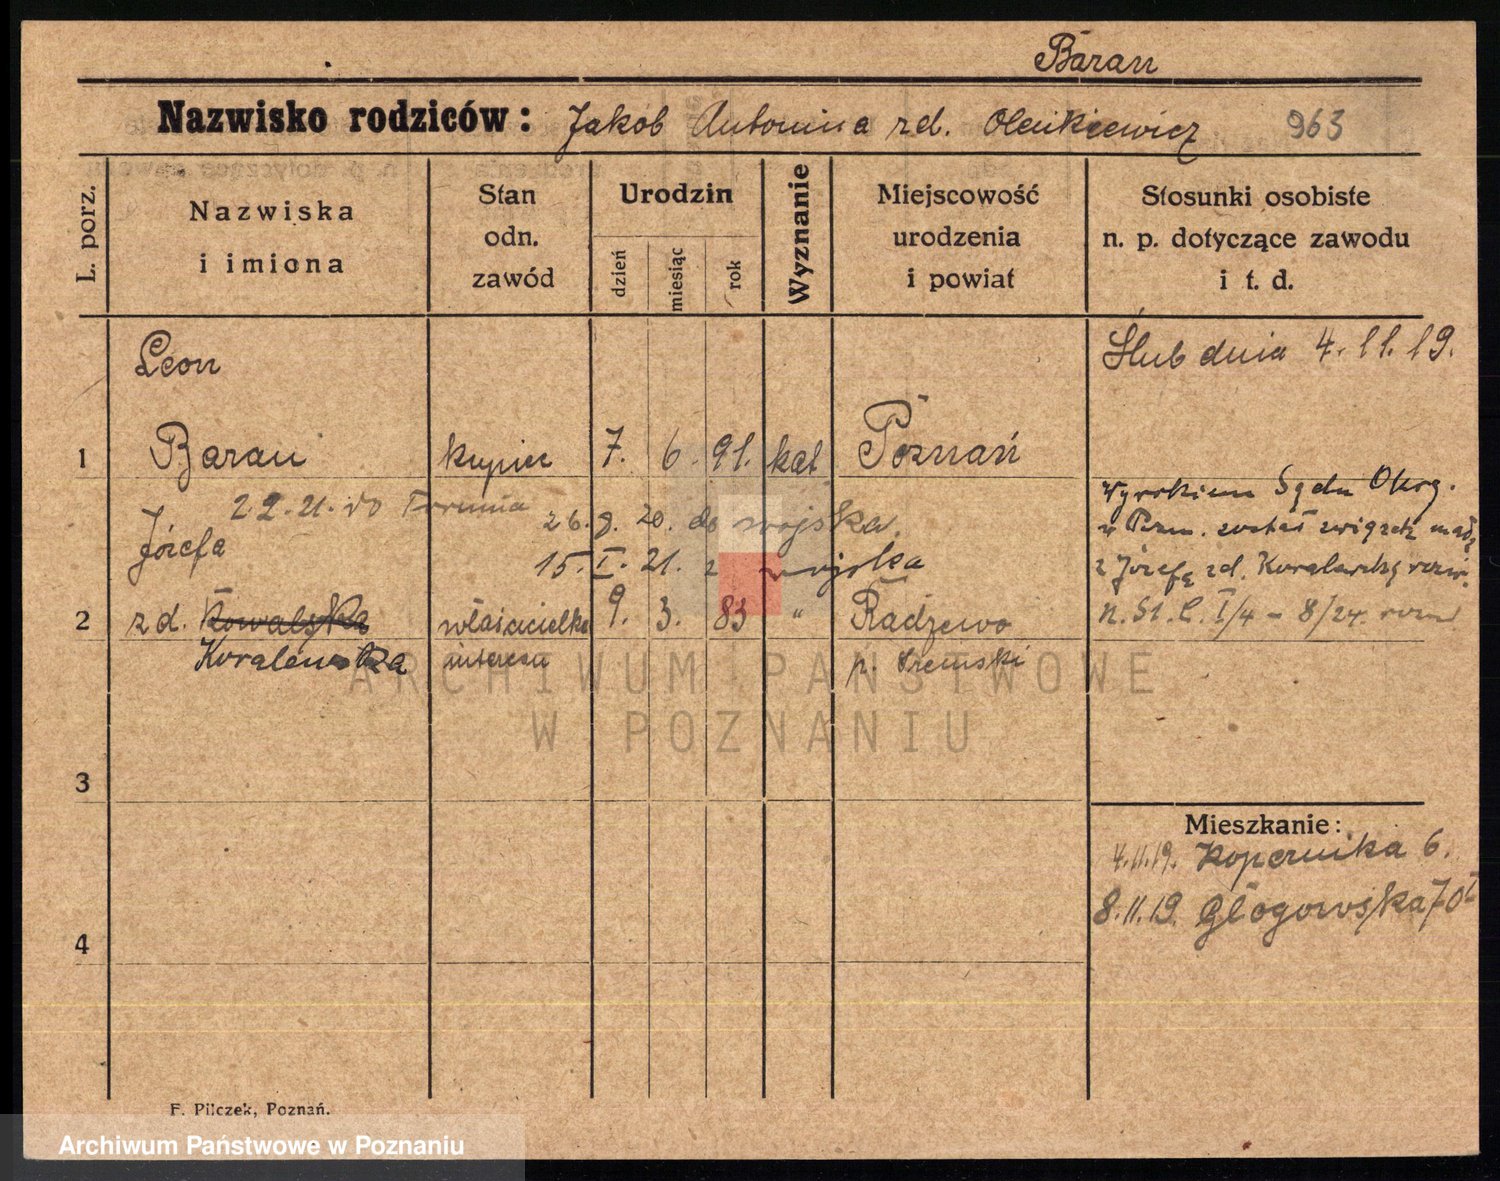 Baran
Nazwisko rodziców: Jakób Antonina zd. Olenkiewicz 963
L. porz.
Nazwiska
i imiona
Stan
odn.
zawód
Urodzin
dzień
miesiąc
rok
Wyznanie
Miejscowość
urodzenia
i powiat
Stosunki osobiste
n. p. dotyczące zawodu
i t. d.
Leon
Ślub dnia 4. 11. 19.
1 Baran kupiec 7. 6. 91. kat Poznań
2.2.21. do Torunia
26. 9. 20. do wojska.
Wyrokiem Sądu Okrg.
w Pozn. został związek małż
Józefa
15. I. 21. z wojska
z Józefą zd. Koralewską rozw.
2 zd. Kowalska właścicielka 9. 3. 83 " Radzewo
n. St. C. I/4 - 8/24.
Koralewska interesu p. Śremski
3
4
Mieszkanie:
4.11.19. Kopernika 6.
8.11.19. Głogowska 70
F. Pilczek, Poznań.
ARCHIWUM PAŃSTWOWE
W POZNANIU
Archiwum Państwowe w Poznaniu